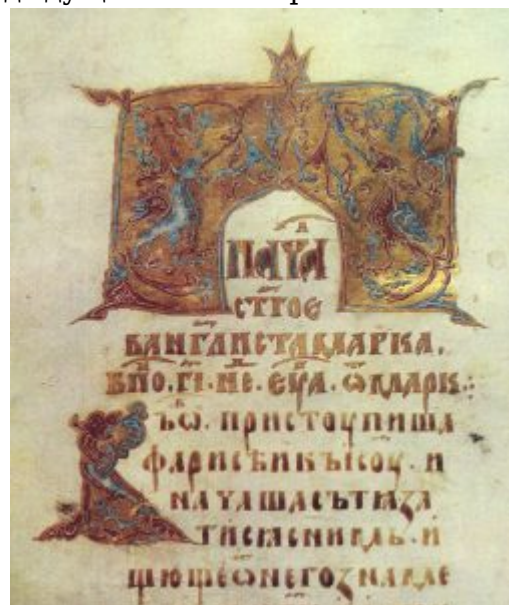 НАЧА
СТГОЕ
ВАНГЛИСТАМАРКА.
ВПО.ГІ.НЕ.ЕУА.ѾМАРК:
ВЪѠ. ПРИСТОУПИША
ФАРИСѢИКЪІСОУ. И
НАЧАШАСЪТѦЗА
ТИСѦСНИМЬ. И
ЩЮЩЕѠНЕГОЗНАМЕ